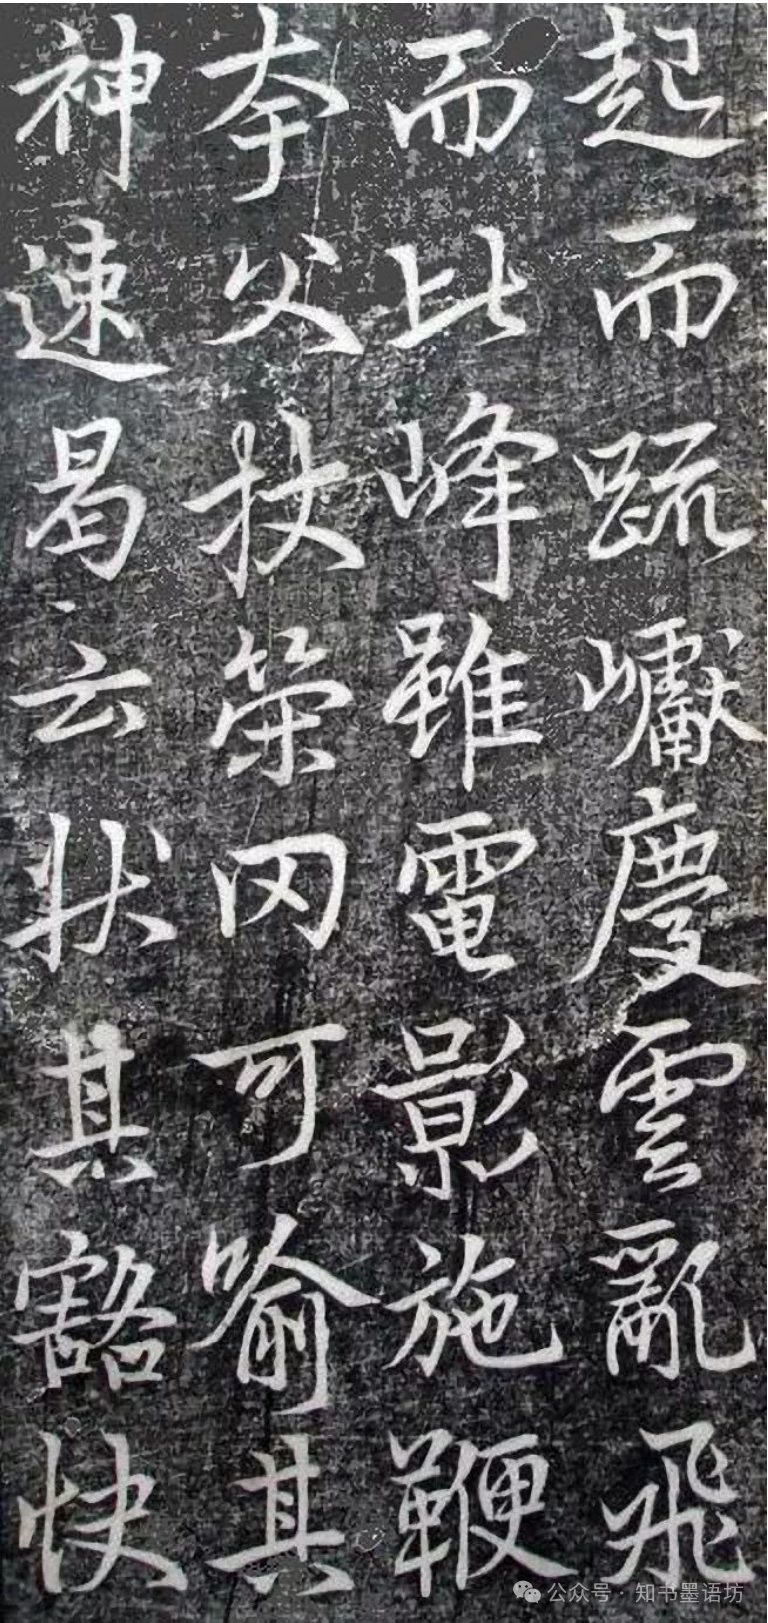 起而䟽巘慶雲亂飛
而比峰雖電影施鞭
夸父扙策罔可喻其
神速曷云狀其豁快
公众号 · 知书墨语坊